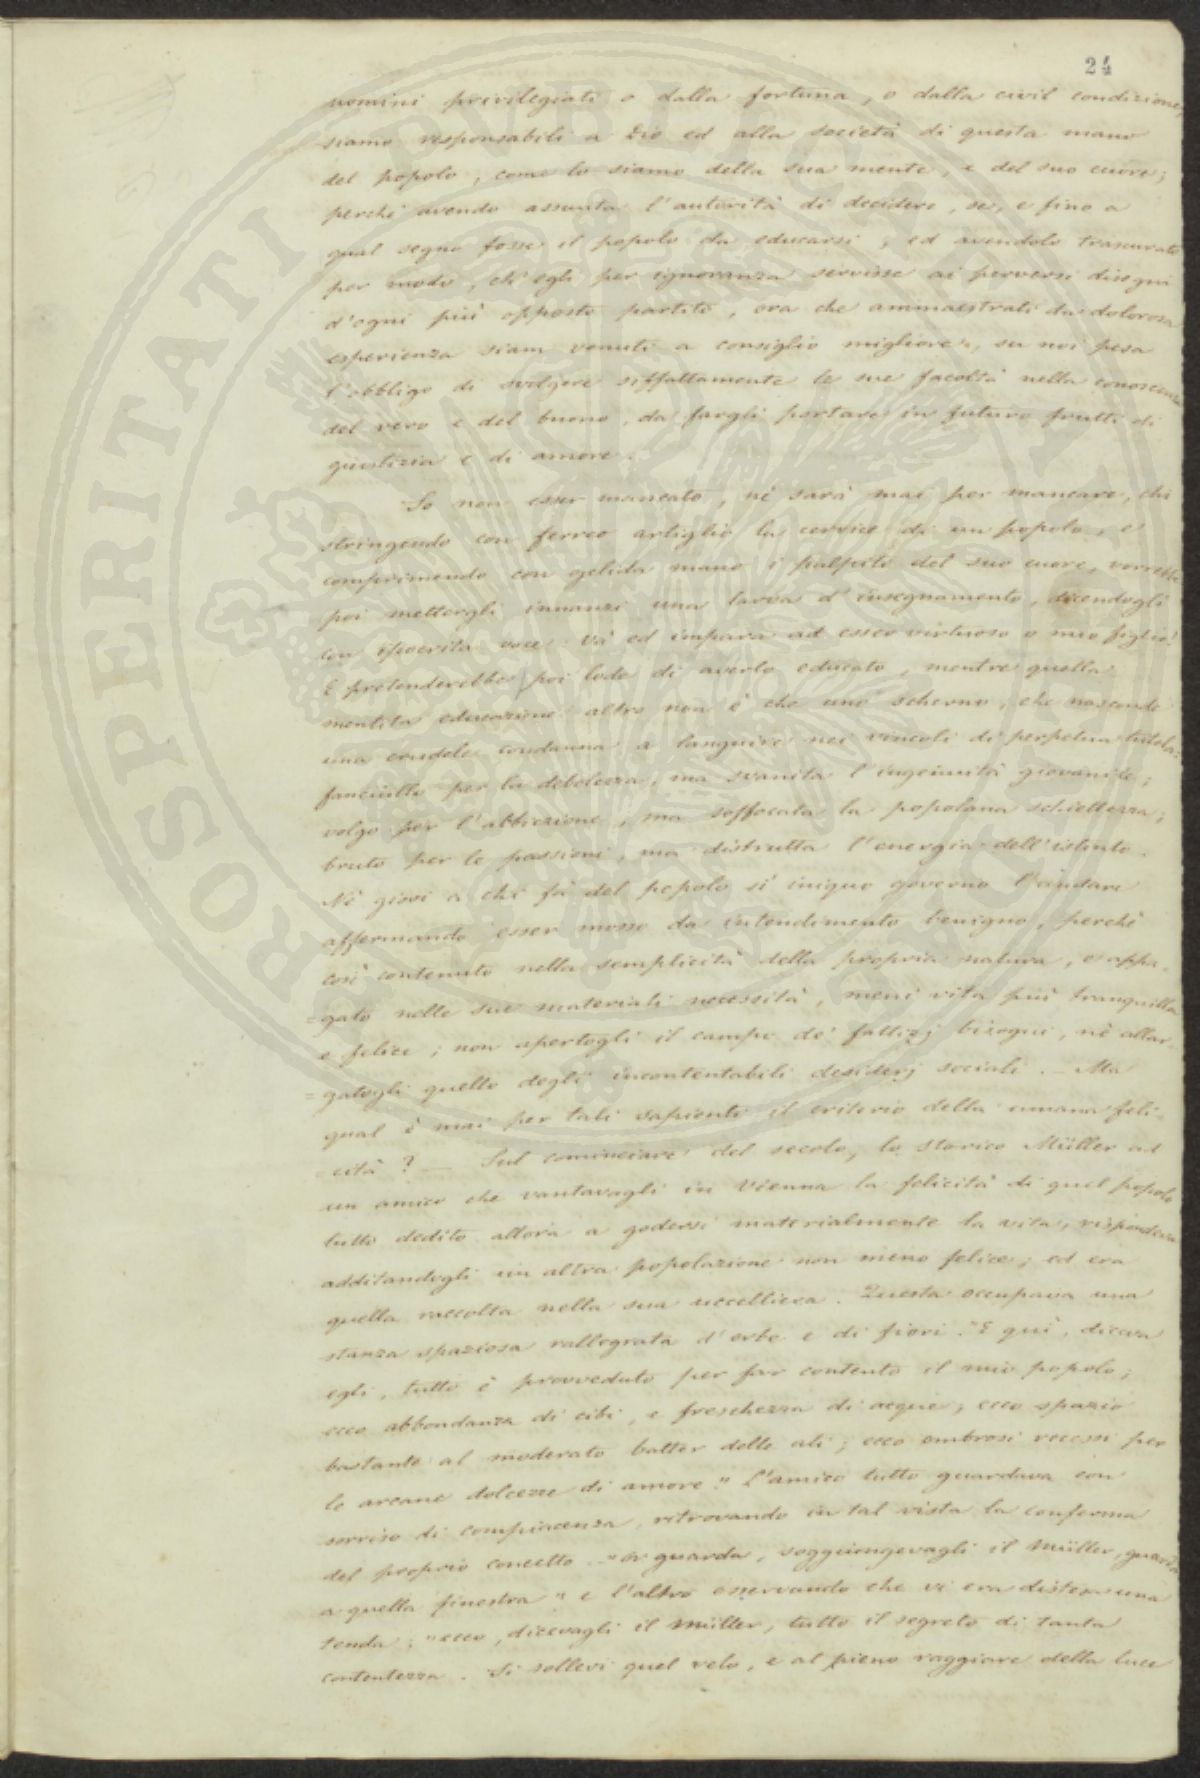 24
uomini privilegiati o dalla fortuna, o dalla civil condizione,
siamo responsabili a Dio ed alla società di questa mano
del popolo, come lo siamo della sua mente, e del suo cuore;
perchè avendo assunta l'autorità di decidere, se, e fino a
qual segno fosse il popolo da educarsi; ed avendolo trascurato
per modo, ch'egli per ignoranza servisse ai perversi disegni
d'ogni più opposto partito, ora che ammaestrati da dolorosa
esperienza siam venuti a consiglio migliore, su noi pesa
l'obbligo di svolgere siffattamente le sue facoltà nella conoscenza
del vero e del buono, da fargli portare in futuro frutti di
giustizia e di amore.
So non esser mancato, nè sarà mai per mancare, chi
stringendo con ferreo artiglio la cervice di un popolo, e
comprimendo con gelida mano i palpiti del suo cuore, vorrebbe
poi mettergli innanzi una larva d'insegnamento, dicendogli
con ipocrita voce. Va ed impara ad esser virtuoso o mio figlio!
E pretenderebbe poi lode di averlo educato, mentre quella
mentita educazione altro non è che uno scherno, che nasconde
una crudele condanna a languire nei vincoli di perpetua tutela:
fanciullo per la debolezza, ma svanita l'ingenuità giovanile;
volgo per l'abbiezione, ma soffocata la popolana schiettezza;
bruto per le passioni, ma distrutta l'energia dell'istinto.
Nè giovi a chi fà del popolo sì iniquo governo l'andare
affermando esser mosso da intendimento benigno, perchè
così contenuto nella semplicità della propria natura, e appa-
=gato nelle sue materiali necessità, meni vita più tranquilla
e felice; non apertogli il campo de' fattizj bisogni, nè allar-
=gatogli quello degli incontentabili desiderj sociali. — Ma
qual è mai per tali sapienti il criterio della umana feli-
=cità? — Sul cominciare del secolo, lo storico Müller ad
un amico che vantavagli in Vienna la felicità di quel popolo
tutto dedito allora a godersi materialmente la vita, rispondeva
additandogli un altra popolazione non meno felice; ed era
quella raccolta nella sua uccelliera. Questa occupava una
stanza spaziosa rallegrata d'erbe e di fiori. "E quì, diceva
egli, tutto è provveduto per far contento il mio popolo;
ecco abbondanza di cibi, e freschezza di acque; ecco spazio
bastante al moderato batter delle ali; ecco ombrosi recessi per
le arcane dolcezze di amore." L'amico tutto guardava con
sorriso di compiacenza, ritrovando in tal vista la conferma
del proprio concetto. "Or guarda, soggiungevagli il Müller, guarda
a quella finestra" e l'altro osservando che vi era distesa una
tenda; "ecco, dicevagli il Müller, tutto il segreto di tanta
contentezza. Si sollevi quel velo, e al pieno raggiare della luce
PROSPERITATI PVBLICAE